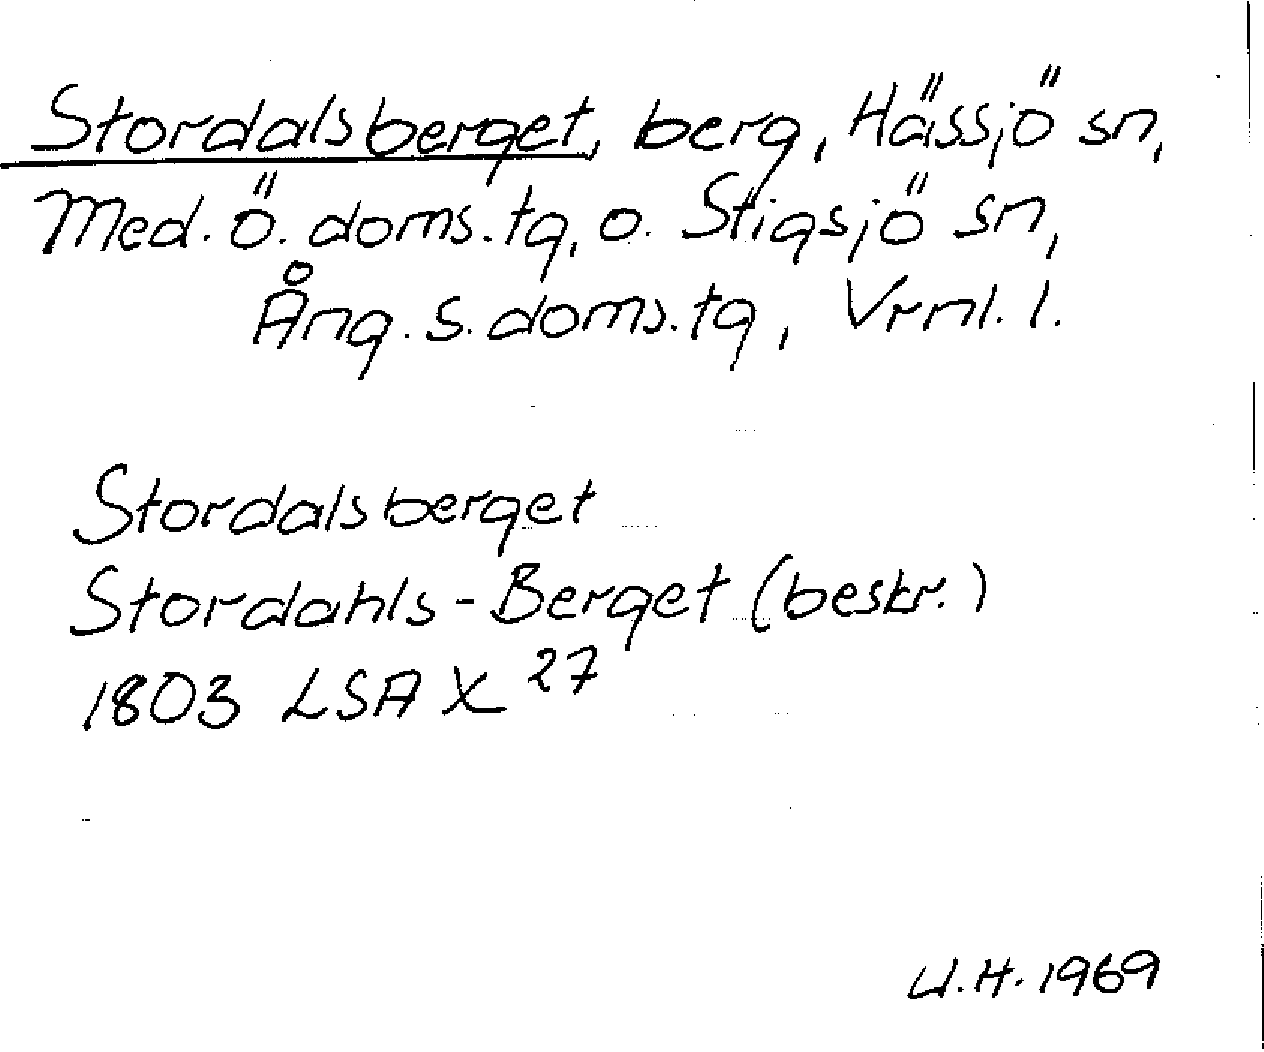 Stordalsberget, berg, Hässjö sn,
Med. Ö. doms.tg, o. Stigsjö sn,
Ång. s. doms.tg, Vrnl. l.
Stordalsberget
Stordahls-Berget (beskr.)
1803 LSA X 27
U.H. 1969